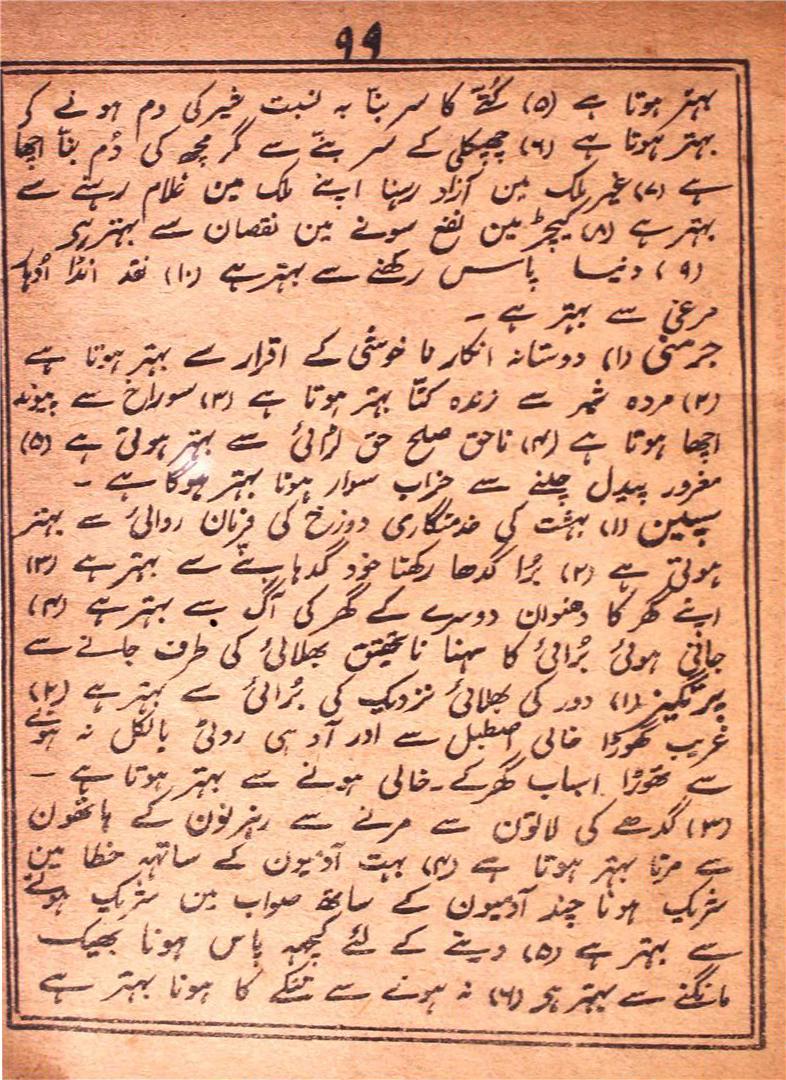 ۹۹
بہتر ہوتا ہے (۵) کُتّے کا سر بنّا بہ نسبت شیر کی دم ہونے کے
بہتر ہوتا ہے (۶) چھپکلی کے سر بنّے سے مگر مچھ کی دُم بنّا اچھا
ہے (۷) غیر ملک مین آزاد رہنا اپنے ملک مین غلام رہنے سے
بہتر ہے (۸) کیچڑ مین نفع سونے مین نقصان سے بہتر ہی
(۹) دنیا پاس رکھنے سے بہتر ہے (۱۰) نقد انڈا اُدہار
مرغی سے بہتر ہے ۔
جرمنی (۱) دوستانہ انکار نا خوشی کے اقرار سے بہتر ہوتا ہے
(۲) مردہ شیر سے زندہ کتّا بہتر ہوتا ہے (۳) سوراخ سے پیوند
اچھا ہوتا ہے (۴) ناحق صلح حق لڑائی سے بہتر ہوتی ہے (۵)
مغرور پیدل چلنے سے خراب سوار ہونا بہتر ہوگا ہے ۔
سپین (۱) بہشت کی خدمتگاری دوزخ کی فرمان روائی سے بہتر
ہوتی ہے (۲) بُرا گدھا رکھنا خود گدہا بنّے سے بہتر ہے (۳)
اپنے گھر کا دھنوان دوسرے کے گھر کی آگ سے بہتر ہے (۴)
جانی ہوئی بُرائی کا سہنا ناتحقیق بھلائی کی طرف جانے سے
پرتگیز (۱) دور کی بھلائی نزدیک کی بُرائی سے بہتر ہے (۲)
غریب گھوڑا خالی اصطبل سے اور آدہی روٹی بالکل نہ ہونے
سے تھوڑا اسباب گھر کے ۔ خالی ہونے سے بہتر ہوتا ہے ۔
(۳) گدھے کی لاتون سے مرنے سے رہزنون کے ہاتھون
سے مرنا بہتر ہوتا ہے (۴) بہت آدمیون کے ساتہہ خطا مین
شریک ہونا چند آدمیون کے ساتھ صواب مین شریک ہونے
سے بہتر ہے (۵) دینے کے لئے کچہہ پاس ہونا بھیک
مانگنے سے بہتر ہی (۶) نہ ہونے سے تنکے کا ہونا بہتر ہے